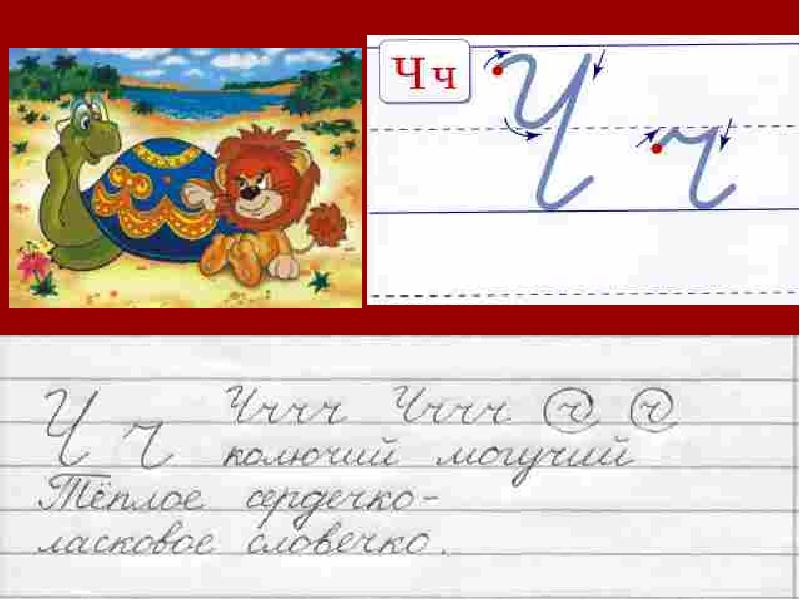 Чч
Ч ч
Ч ч Чччч Чччч ч ч
колючий могучий
Тёплое сердечко-
ласковое словечко.